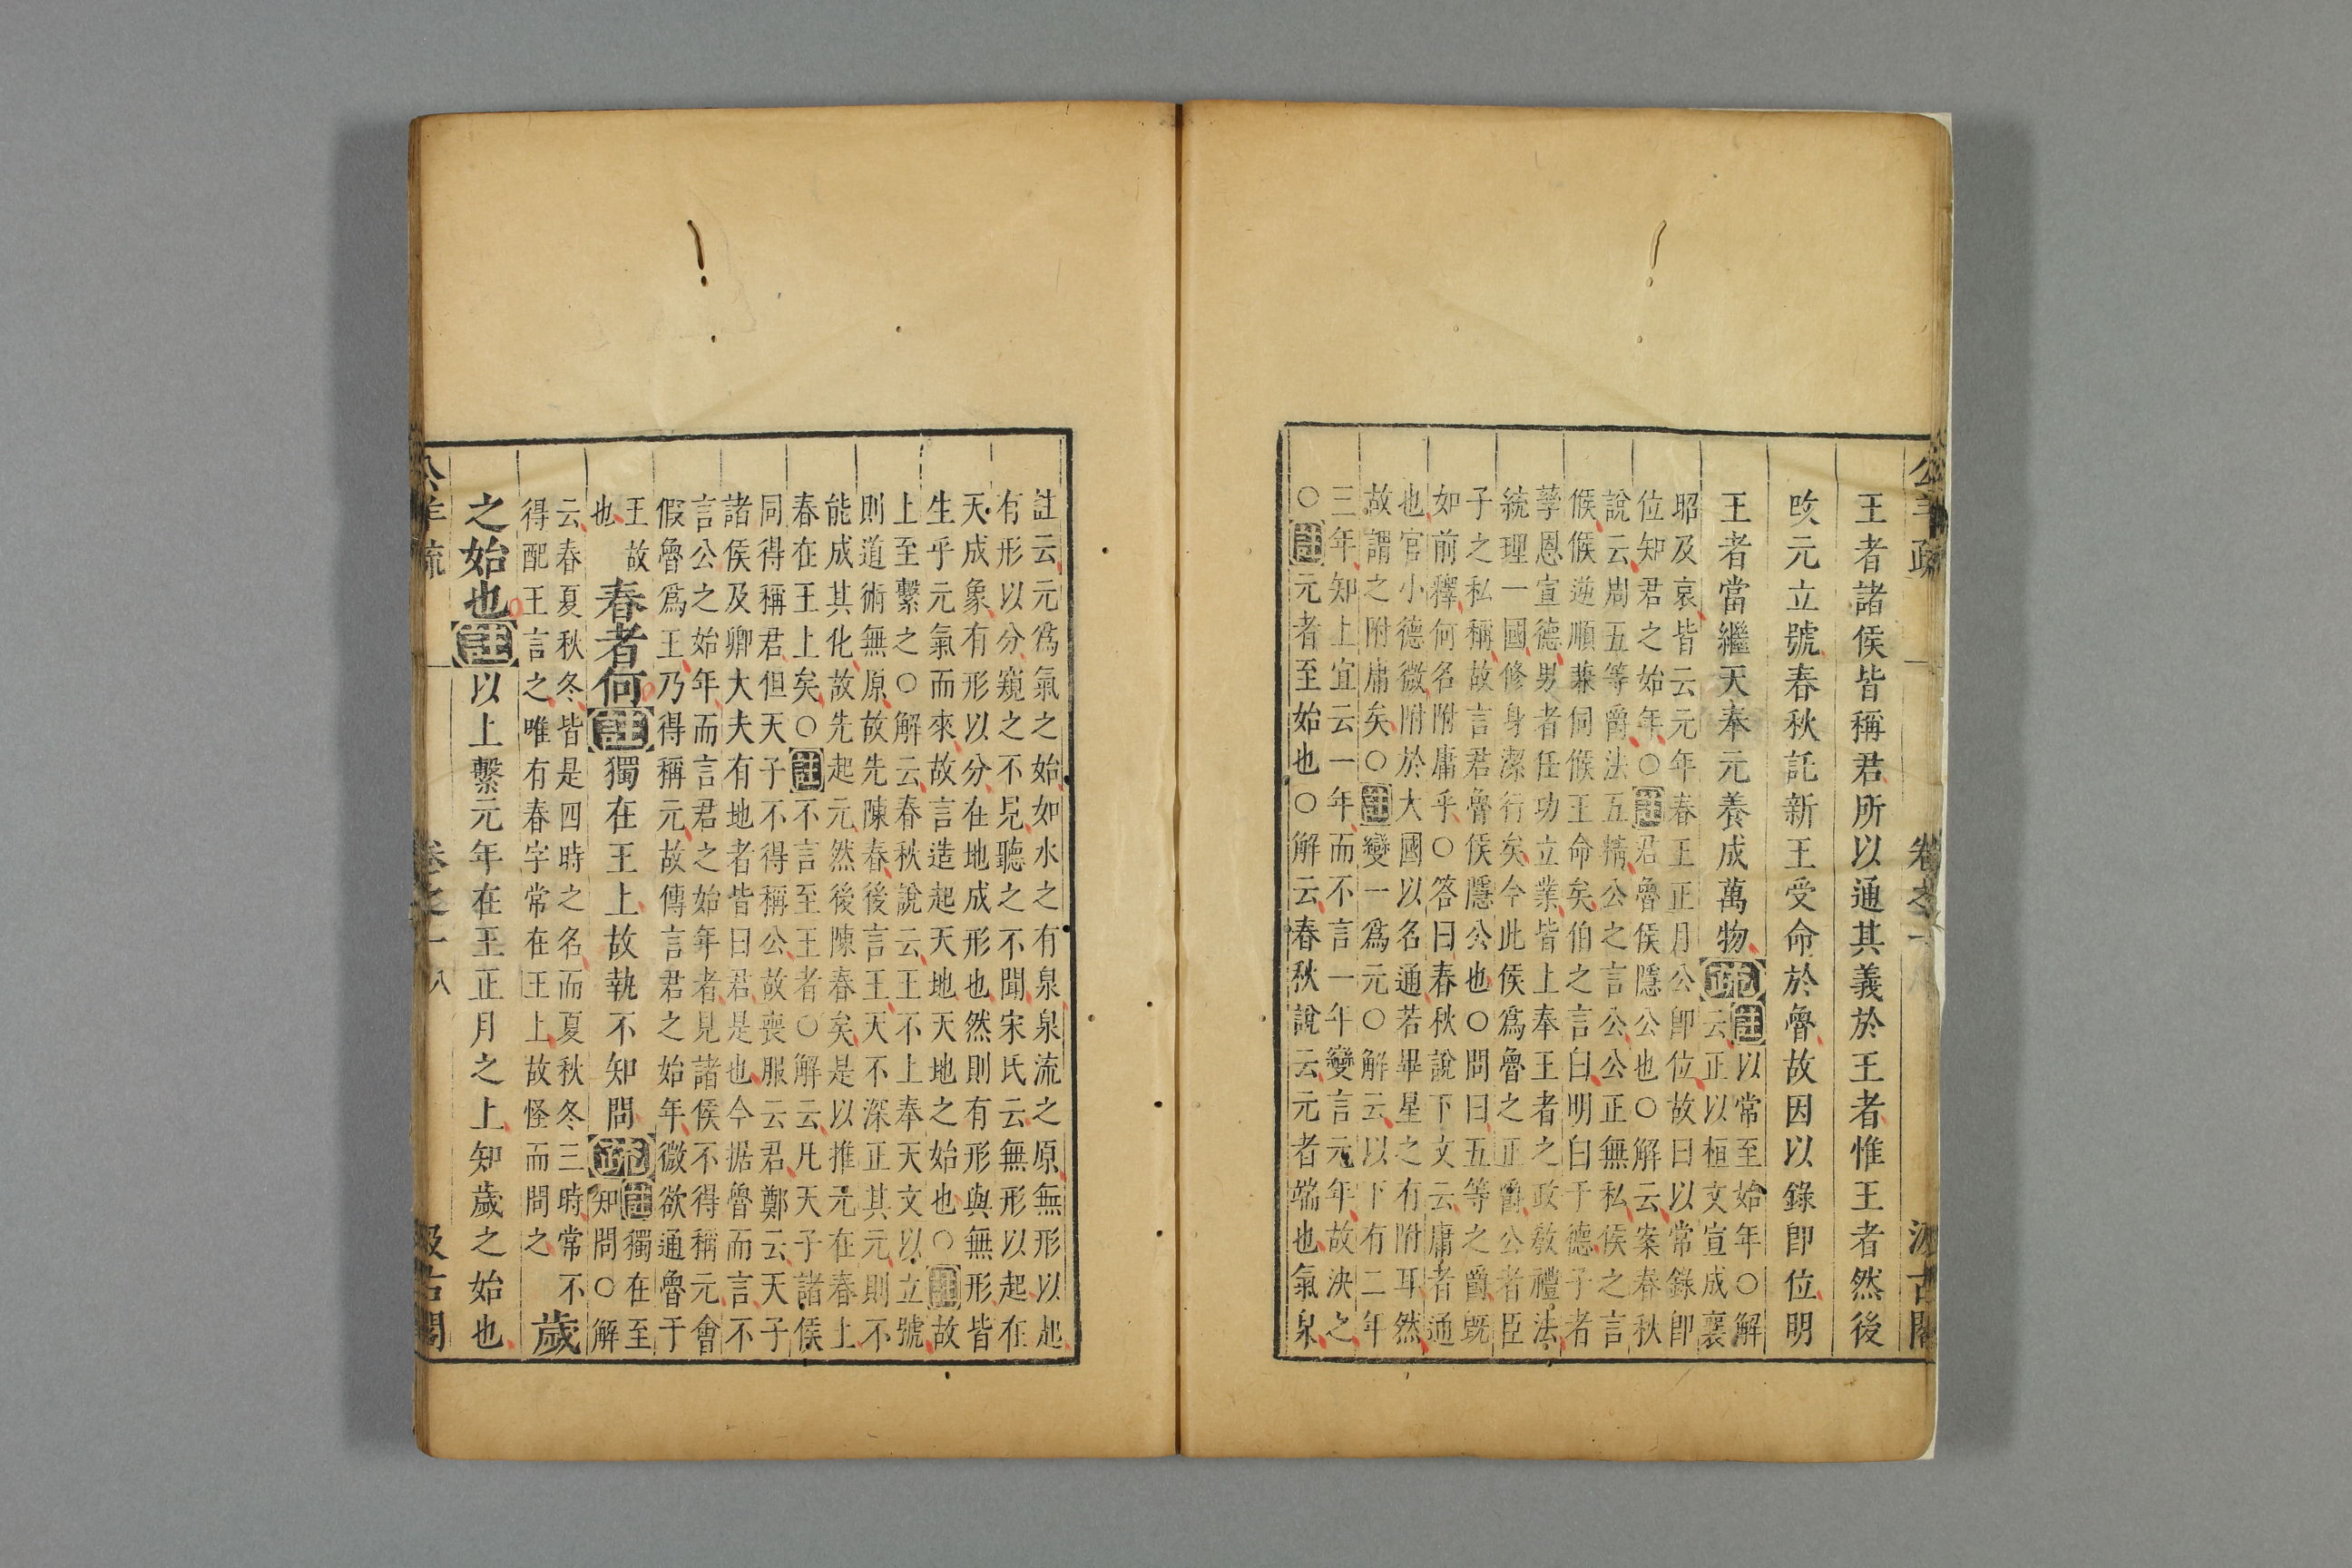 公羊疏 卷之一 汲古閣
王者諸侯皆稱君所以通其義於王者惟王者然後
改元立號春秋託新王受命於魯故因以錄卽位明
王者當繼天奉元養成萬物疏註以常至始年○解
云正以桓文宣成襄
昭及哀皆云元年春王正月公卽位故曰以常錄卽
位知君之始年○註君魯侯隱公也○解云案春秋
說云周五等爵法五精公之言公公正無私侯之言
候候逆順兼伺候王命矣伯之言白明白于德子者
孳恩宣德男者任功立業皆上奉王者之政敎禮法
統理一國修身潔行矣今此侯爲魯之正爵公者臣
子之私稱故言君魯侯隱公也○問曰五等之爵旣
如前釋何名附庸乎○答曰春秋說下文云庸者通
也官小德微附於大國以名通若畢星之有附耳然
故謂之附庸矣○註變一爲元○解云以下有二年
三年知上宜云一年而不言一年變言元年故決之
○註元者至始也○解云春秋說云元者端也氣泉
註云元爲氣之始如水之有泉泉流之原無形以起
有形以分窺之不見聽之不聞宋氏云無形以起在
天成象有形以分在地成形也然則有形與無形皆
生乎元氣而來故言造起天地天地之始也○註故
上至繫之○解云春秋說云王不上奉天文以立號
則道術無原故先陳春後言王天不深正其元則不
能成其化故先起元然後陳春矣是以推元在春上
春在王上矣○註不言至王者○解云凡天子諸侯
同得稱君但天子不得稱公故喪服云君鄭云天子
諸侯及卿大夫有地者皆曰君是也今据魯而言不
言公之始年而言君之始年者見諸侯不得稱元會
假魯爲王乃得稱元故傳言君之始年微欲通魯于
王故
也
春者何註獨在王上故執不知問疏註獨在至
知問○解
云春夏秋冬皆是四時之名而夏秋冬三時常不
得配王言之唯有春字常在王上故怪而問之
歲
之始也註以上繫元年在王正月之上知歲之始也
公羊疏 卷之一 八 汲古閣